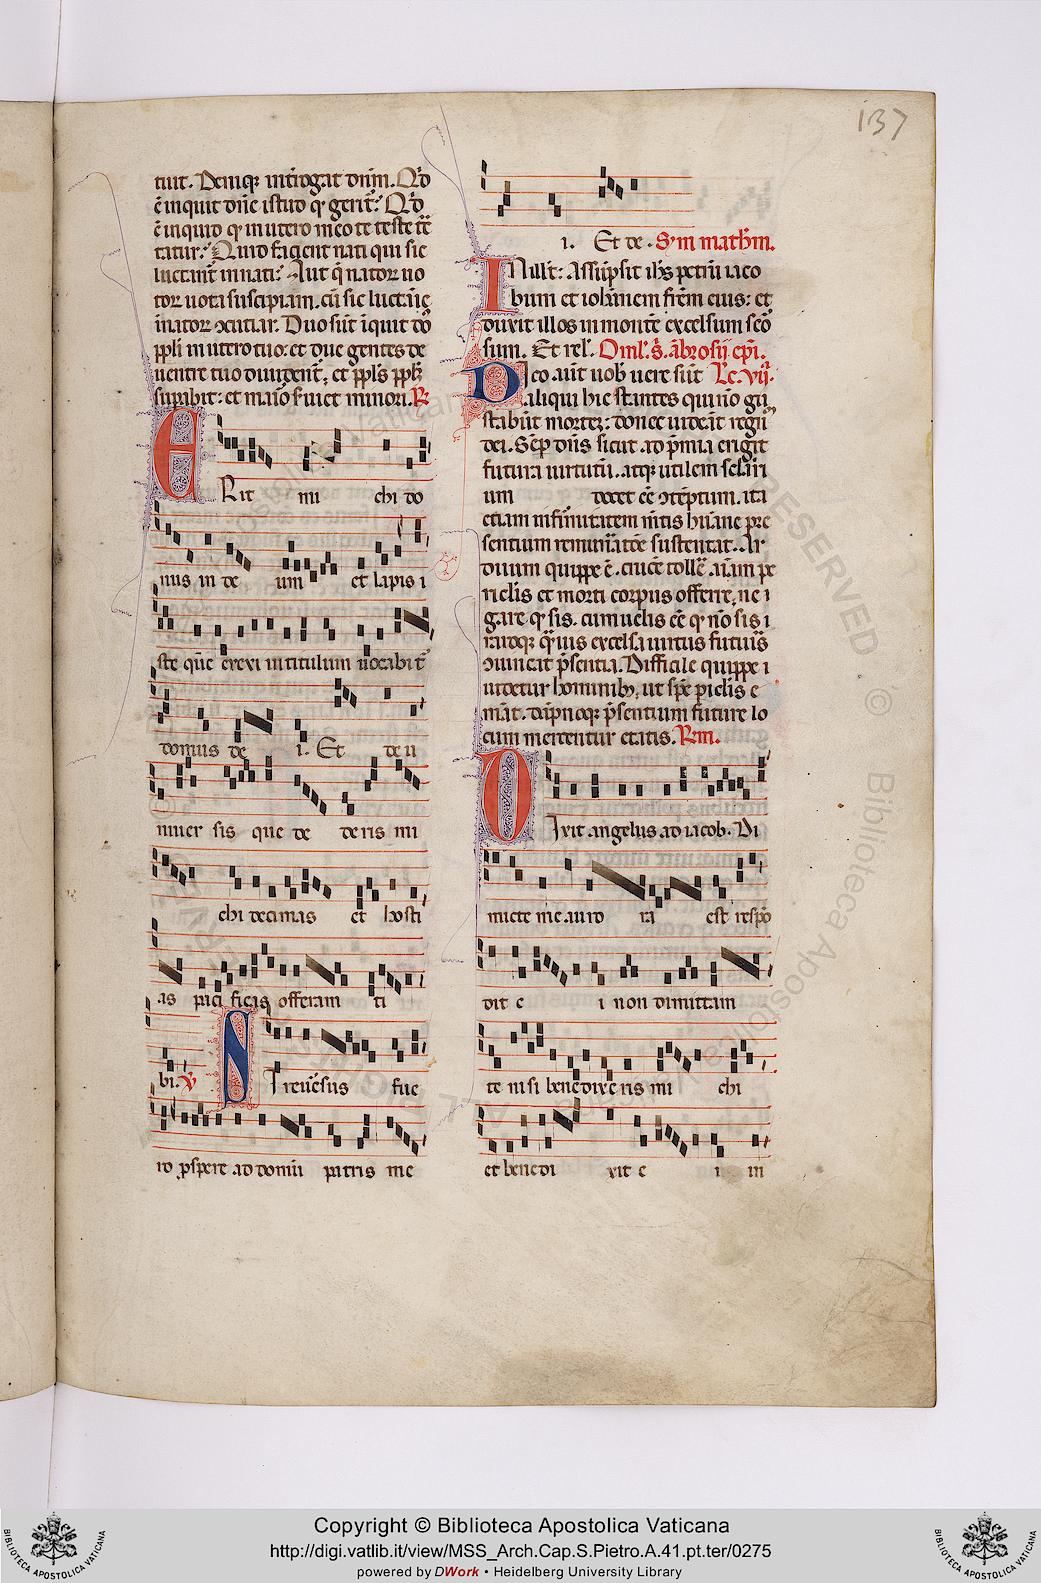 137
tiut. Deniq; int̄rogat dñm. Q̇d
ē inquit dñe istud q̇ gerit̄? Q̇d
ē inquid q̇ in utero meo te teste c̄e
tatur? Quid faciēt nati qui sic
luctant̄ innati? Aut q̄ nator uo
tor uota suscipiam. cū sic luctan̄ē
natoꝝ ↄcutiar. Duo sūt īquit dō
pp̄li in utero tuo: et due gentes de
uentre tuo diuidenť, et pp̄ls pp̄lm̄
supabit: et maīo ſuiet minori. R̷
E
Rit mi chi do
inus in de um et lapis i
ste quē erexi in titulum uocabit̄
domus de i. Et de u
niuer sis que de deris mi
chi decimas et hosti
as paci ficas offeram ti
bi. ℣ S I reuēsus fue
ro p̱spere ad domū patris me
i. Et de. S̄m math̄m.
I N ill t̄: Assūpsit ih̄s petrū iaco
bum et ioh̄nnem fr̄em eius: et
duxit illos in montē excelsum seō
sum. Et rel. Oml̄. s̄. āb̄rosij ep̄i.
D Ico aut̄ uob̄ uere sūt Lc̄. vij.
aliqui hic stantes qui nō gu
stabūt mortē: donec uideāt regū
dei. Sēp dn̄s sicut ad p̄mia erigit
futura uirtutū. atq; utilem sc̄l̄ari
um docet eē ↄtēptum. ita
etiam infirmitatem mētis hūane pre
sentium remun̄atōe sustentat. Ar
duum quippe ē. crucē tollē. aīam pe
riclis et morti corpus offerre, ne
gare q̇ sis. cum uelis eē q̇ nō sis
raroq; q̄uis excelsa uirtus futuris
p̄sentia. Difficile quippe
uidetur hominib;, ut spē piclis e
māt. dāpnoq; p̄sentium future lo
cum mercentur etatis. R̷m.
D Ixit angelus ad iacob. Di
micte me auro ra est respō
dit e i non dimittam
te nisi benedixe ris mi chi
et benedi xit e i in
Copyright © Biblioteca Apostolica Vaticana
http://digi.vatlib.it/view/MSS_Arch.Cap.S.Pietro.A.41.pt.ter/0275
powered by DWork • Heidelberg University Library
BIBLIOTECA APOSTOLICA VATICANA
BIBLIOTECA APOSTOLICA VATICANA